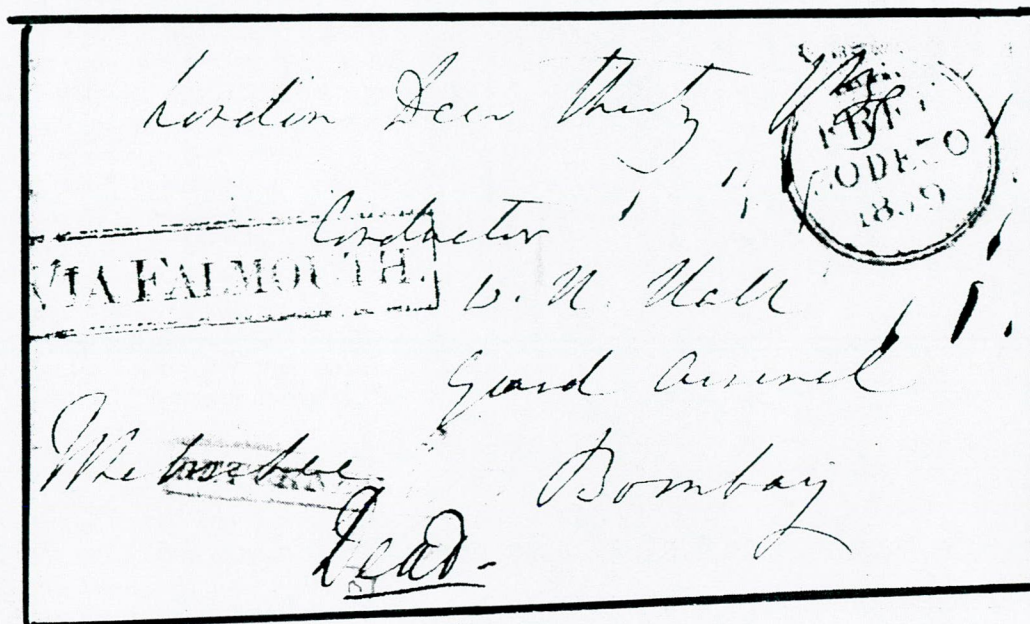 London Decr thirty
FREE
30DE30
1839
Conductor
VIA FALMOUTH.
W. N. Hall
Grand Arsenal
Bombay
Dead-